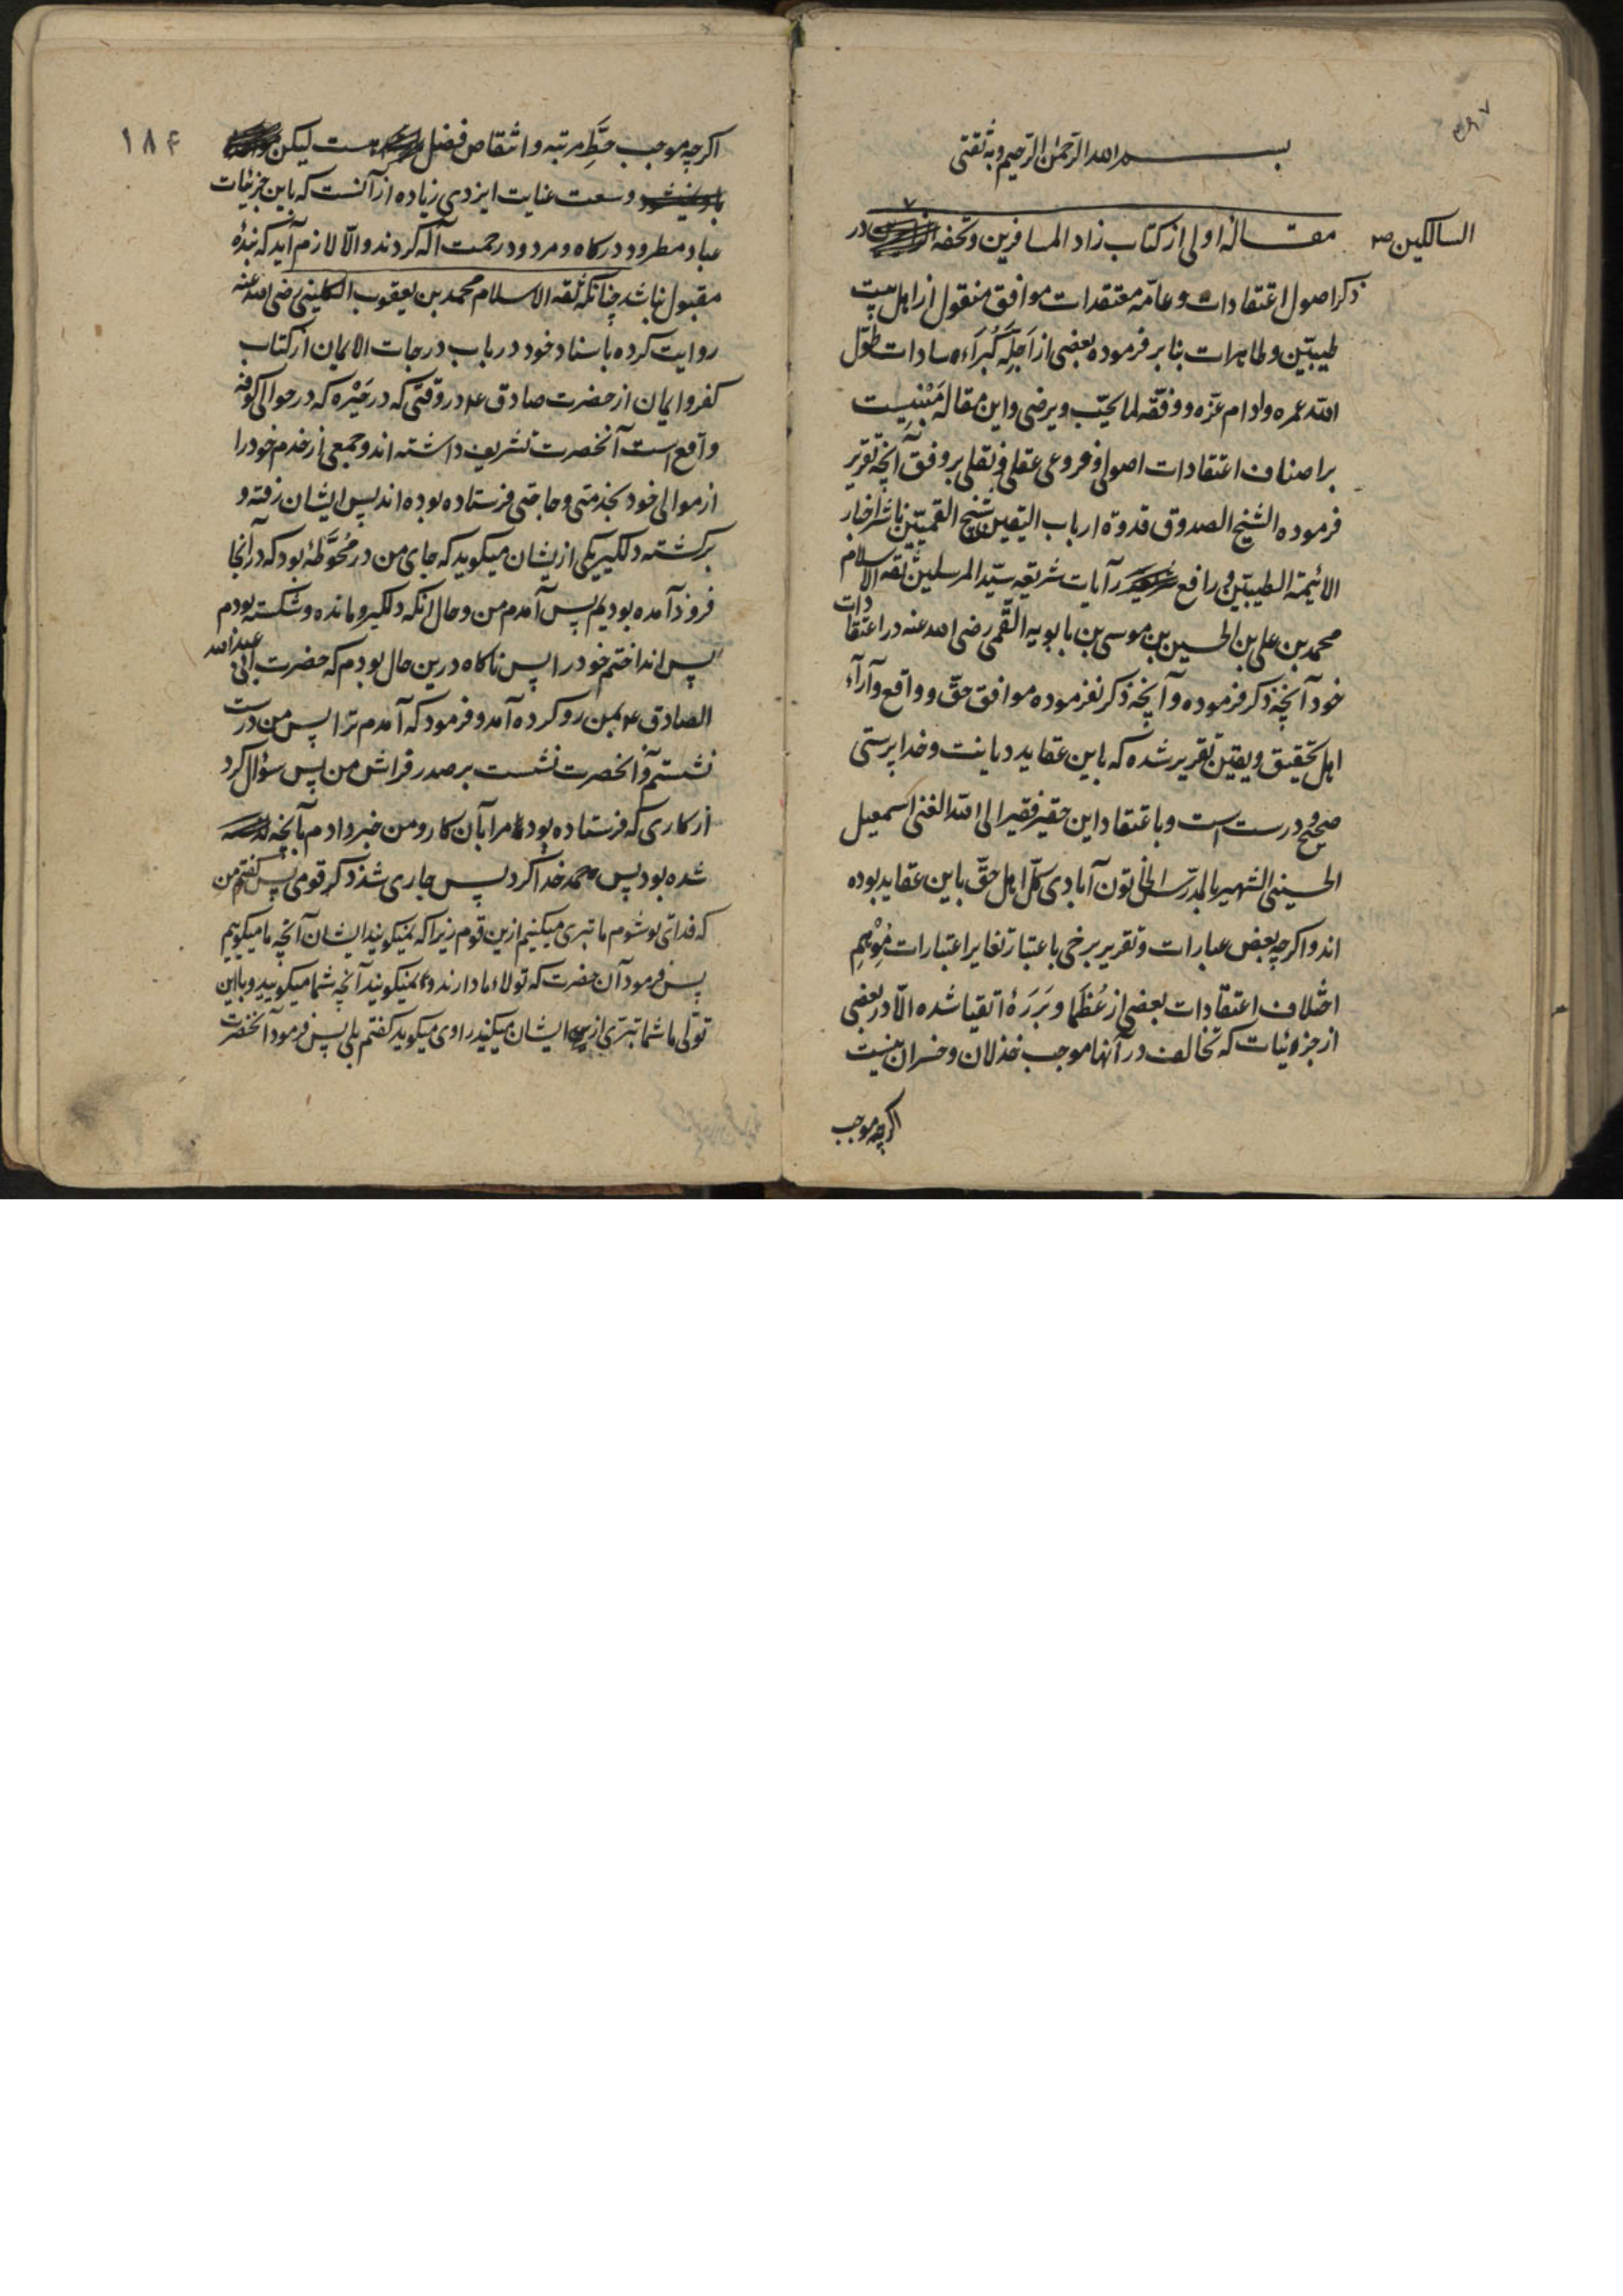 بسم الله الرحمن الرحیم وبه ثقتی
مقاله اولی از کتاب زاد المسافرین وتحفه در
السالکین صح
ذکر اصول اعتقادات وعامّه معتقدات موافق منقول از اهل بیت
طیبّین وطاهرات بنا بر فرموده بعضی از اَجِلّه کُبَرَاء سادات طوّل
الله عمره وادام عزّه ووفّقه لما یحبّ ویرضی واین مقاله مَبْنیست
بر اصناف اعتقادات اصولی وفروعی عقلی ونقلی بر وفق آنچه تقریر
فرموده الشیخ الصدوق قدوة ارباب الیقین شیخ القمیّین ناشر اخبار
الائیمة الطیبیّن رافع رآیات شریعه سیّد المرسلین ثقه الاسلام
محمد بن علی بن الحسین بن موسی بن بابویه القمّی رضی الله عنه در اعتقادات
خود آنچه ذکر فرموده وآنچه ذکر نفرموده موافق حقّ وواقع وآرآء
اهل تحقیق ویقین تقریر شده که باین عقاید دیانت وخدا پرستی
صحیح ودرست است وباعتقاد این حقیر فقیر الی الله الغنی اسمعیل
الحسینی الشهیر بالمدرّس الخاتون آبادی کلّ اهل حقّ باین عقاید بوده
اند واکرچه بعض عبارات وتقریر برخی باعتبار تغایر اعتبارات مُوْهِمِ
اختلاف اعتقادات بعضی از عُظَما وبَرَرَهٔ اتقیا شده الّا در بعضی
از جزوئیات که تخالف در آنها موجب خذلان وخسران نیست
اکرچه موجب
۱۸۴
اکرچه موجب حَطِّ مرتبه وانتقاص فضل هست لیکن
وسعت عنایت ایزدی زیاده از آنست که باین جزئیات
عباد مطرود درکاه ومردود رحمت آله کردند والّا لازم آید که بندهٔ
مقبول نباشد چنانکه ثقه الاسلام محمد بن یعقوب الکلینی رضی الله عنه
روایت کرده باسناد خود در باب درجات الایمان از کتاب
کفر وایمان از حضرت صادق ع در وقتی که در حَیْره که در حوالی کوفه
واقع است آنحضرت تشریف داشته اند وجمعی از خدم خود را
از موالی خود بخدمتی وحاجتی فرستاده بوده اند پس ایشان رفته و
برکشته دلکیر یکی ازیشان میکوید که جای من در مُحَوَّطهٔ بود که در آنجا
فرود آمده بودیم پس آمدم من وحال انکه دلکیر ومانده وشکسته بودم
پس انداختم خود را پس ناکاه درین حال بودم که حضرت ابی عبدالله
الصادق ع بمن رو کرده آمد وفرمود که آمدم ترا پس من درست
نشستم وآنحضرت نشست بر صدر فراش من پس سؤال کرد
از کاری که فرستاده بود مرا بآن کار ومن خبر دادم بآنچه
شده بود پس حمد خدا کرد پس جاری شد ذکر قومی پس کفتم من
که فدای تو شوم ما تبری میکنیم ازین قوم زیرا که نمیکویند ایشان آنچه ما میکوییم
پس فرمود آن حضرت که تولاء ما دارند و نمیکویند آنچه شما میکویید وبا این
تولّی ما شما تبرّی از ایشان میکنید راوی میکوید کفتم بلی پس فرمود آنحضرت